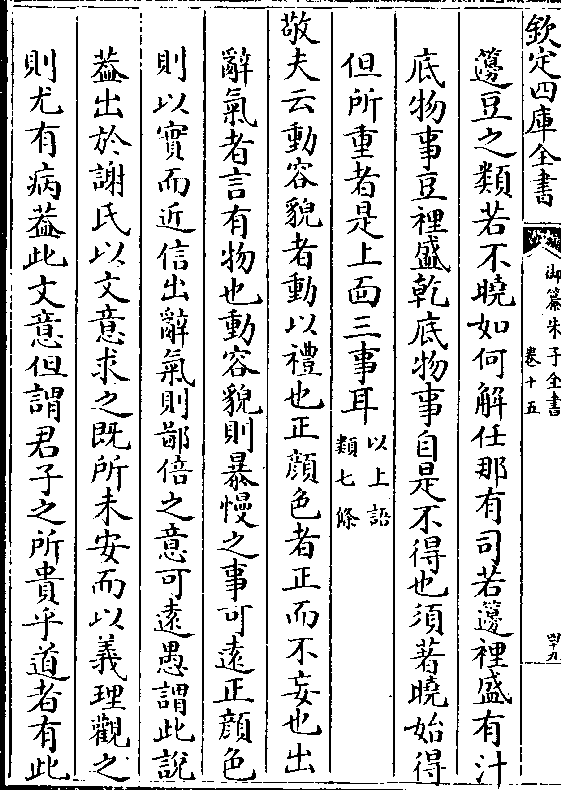 欽定四庫全書
御纂朱子全書 卷十五
四十九
籩豆之類若不曉如何解任那有司若籩裡盛有汁
底物事豆裡盛乾底物事自是不得也須著曉始得
但所重者是上面三事耳以上語類七條
敬夫云動容貌者動以禮也正顔色者正而不妄也出
辭氣者言有物也動容貌則暴慢之事可遠正顔色
則以實而近信出辭氣則鄙倍之意可遠愚謂此說
葢出於謝氏以文意求之既所未安而以義理觀之
則尤有病葢此文意但謂君子之所貴乎道者有此